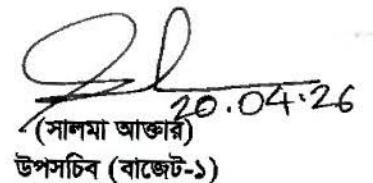 20.04.26
(সালমা আক্তার)
উপসচিব (বাজেট-১)